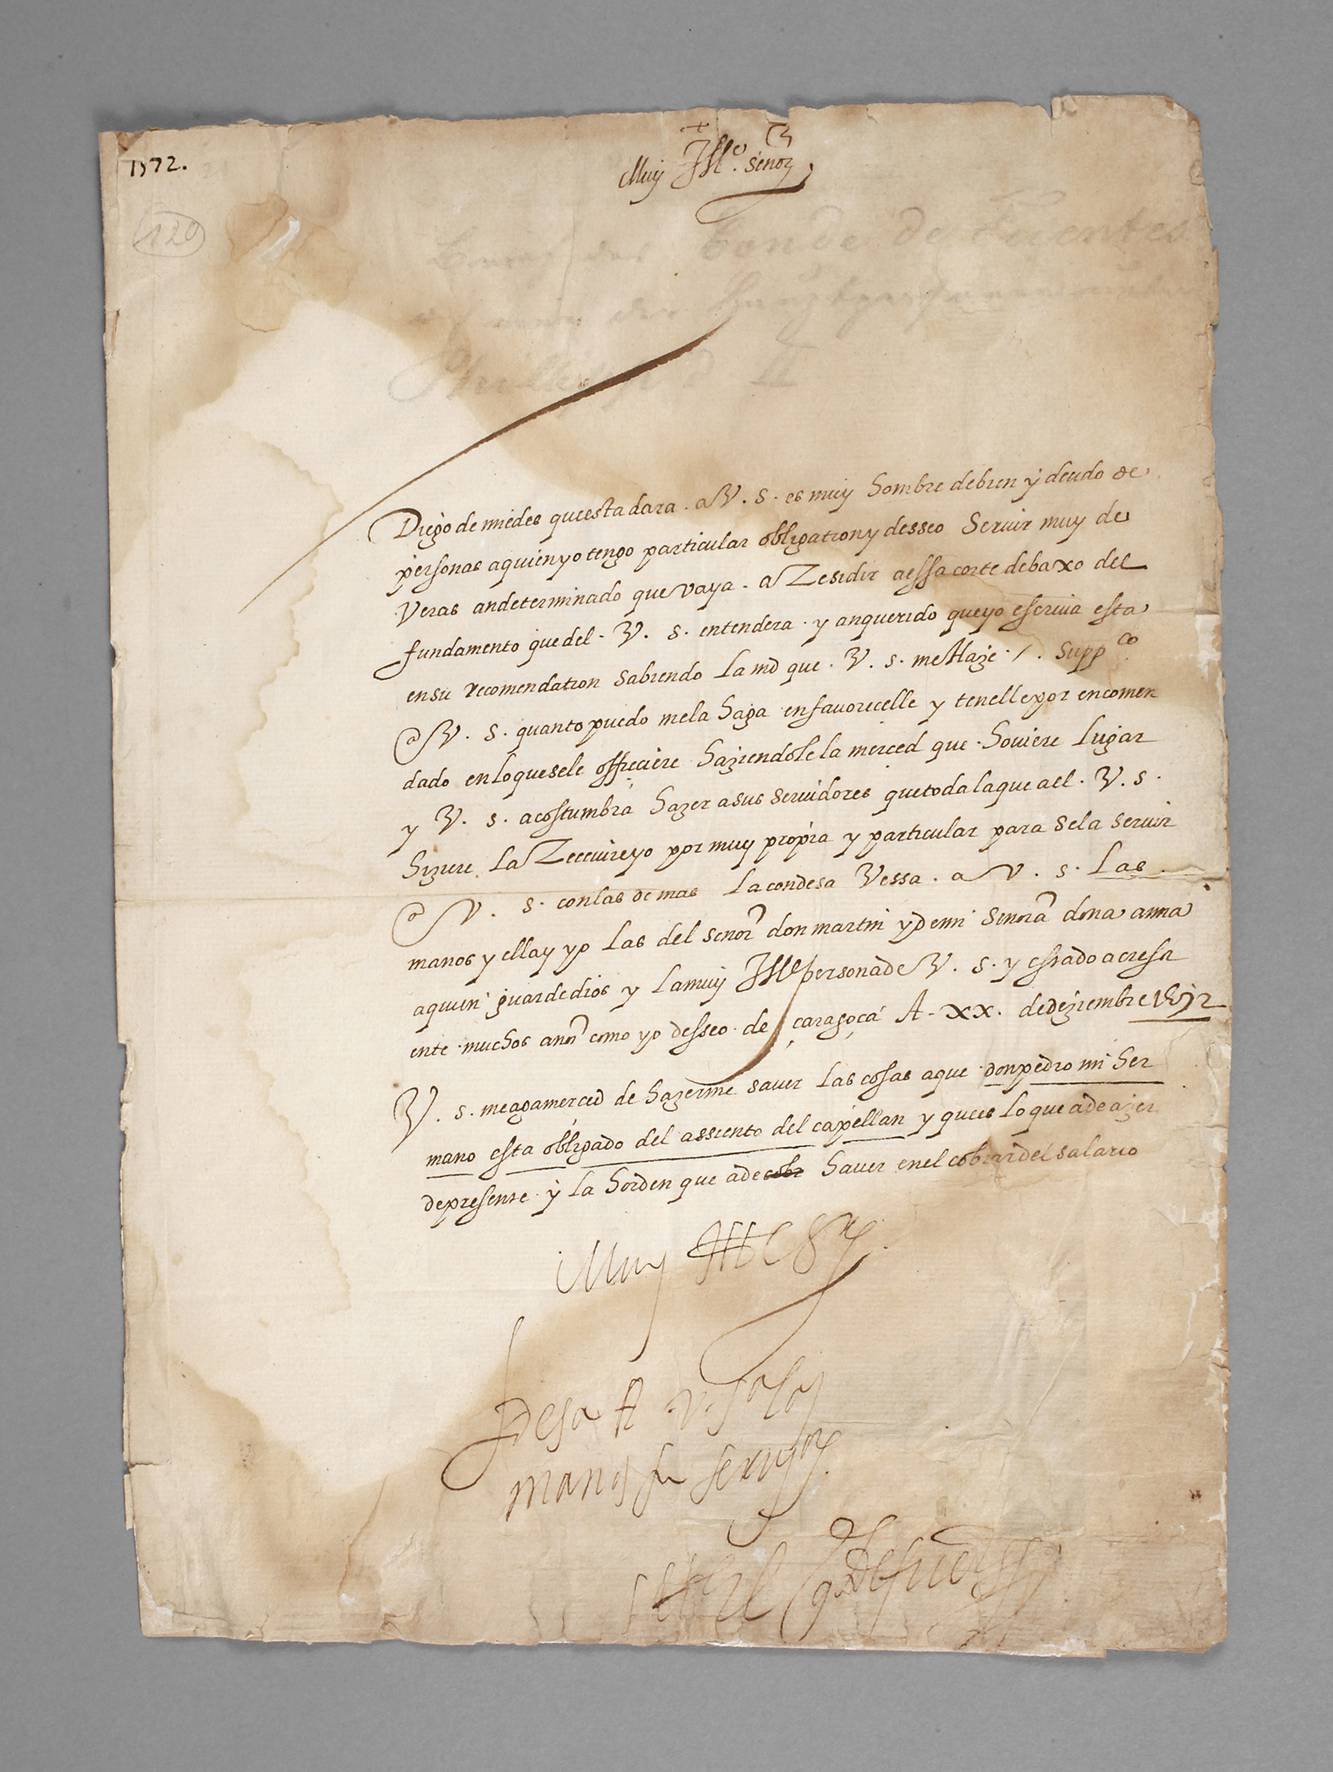 1572.
120
Muy Ille. señor
Conde de Fuentes
Diego de miedes questa dara. a V. S. es muy hombre de bien y deudo de
personas a quien yo tengo particular obligation y desseo Seruir muy de
Veras an determinado que vaya. a Residir a essa corte debaxo del
fundamento que del. V. S. entendera. y an querido que yo escriua esta
en su recomendation Sabiendo la md que. V. S. me Haze /. Suppco
a V. S. quanto puedo me la haga en fauorecelle y tenelle por encomen
dado en lo que se le offreciere haziendole la merced que. houiere lugar
y V. S. acostumbra hazer a sus seruidores que toda la que a el. V. S.
hiziere. la Receuire yo por muy propia y particular para se la seruir
a V. S. con las de mas la condesa Vessa. a V. S. Las
manos y ella y yo Las del Señor don martin y de mi Señora doña anna
a quien guarde dios y la muy Ille persona de V. S. y estado acresci
ente muchos años como yo desseo. de çaragoça A. XX. de deziembre 1572
V. S. me aga merced de hazerme sauer las cosas a que don pedro mi her
mano esta obligado del assiento del capellan y que es lo que a de azer
de presente. y la horden que a de cobr hauer en el cobrar del salario
Muy Ille Sr
besa A v. s. las
manos su seruidor